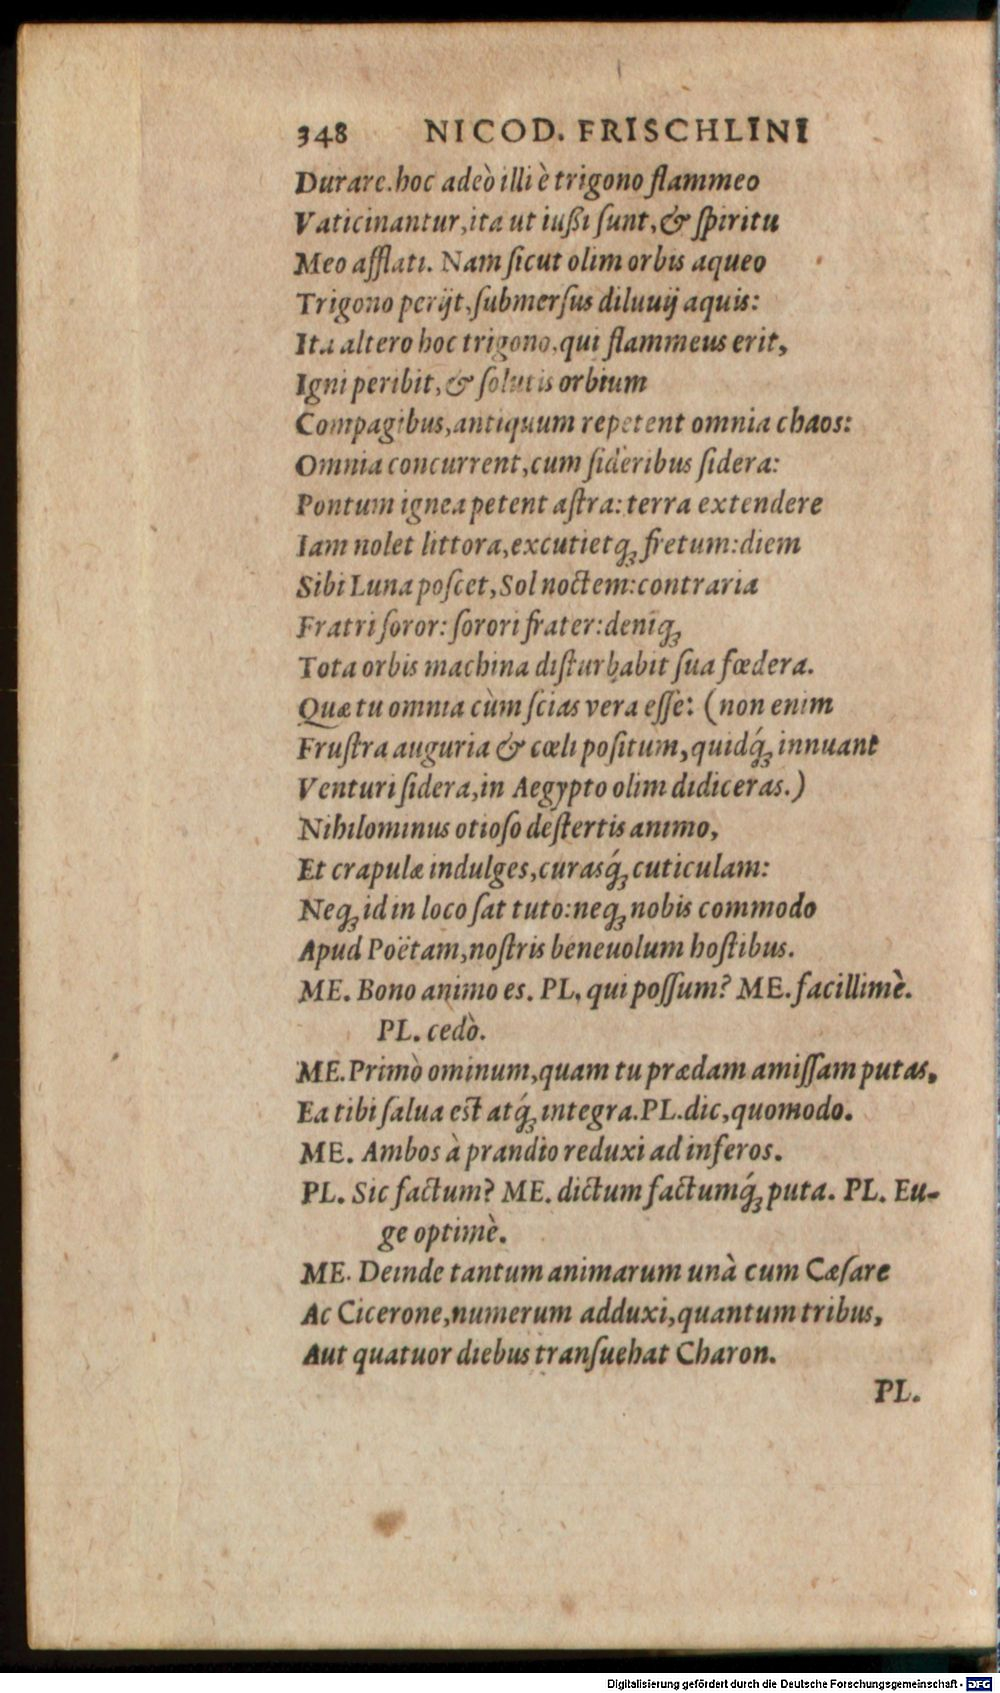 348 NICOD. FRISCHLINI
Durare. hoc adeò illi è trigono flammeo
Vaticinantur, ita ut iußi ſunt, & ſpiritu
Meo afflati. Nam ſicut olim orbis aqueo
Trigono perijt, ſubmerſus diluuij aquis:
Ita altero hoc trigono, qui flammeus erit,
Igni peribit, & ſolutis orbium
Compagibus, antiquum repetent omnia chaos:
Omnia concurrent, cum ſideribus ſidera:
Pontum ignea petent aſtra: terra extendere
Iam nolet littora, excutietq́ꝫ fretum: diem
Sibi Luna poſcet, Sol noctem: contraria
Fratri ſoror: ſorori frater: deniqꝫ
Tota orbis machina diſturbabit ſua fœdera.
Quæ tu omnia cùm ſcias vera eſſe: (non enim
Fruſtra auguria & cœli poſitum, quidq́ꝫ innuant
Venturi ſidera, in Aegypto olim didiceras.)
Nihilominus otioſo deſtertis animo,
Et crapulæ indulges, curasq́ꝫ cuticulam:
Neqꝫ id in loco ſat tuto: neqꝫ nobis commodo
Apud Poëtam, noſtris beneuolum hoſtibus.
ME. Bono animo es. PL. qui poſſum? ME. facillimè.
PL. cedò.
ME. Primò ominum, quam tu prædam amiſſam putas,
Ea tibi ſalua eſt atq́ꝫ integra. PL. dic, quomodo.
ME. Ambos à prandio reduxi ad inferos.
PL. Sic factum? ME. dictum factumq́ꝫ puta. PL. Eu-
ge optimè.
ME. Deinde tantum animarum unà cum Cæſare
Ac Cicerone, numerum adduxi, quantum tribus,
Aut quatuor diebus tranſuehat Charon.
PL.
Digitalisierung gefördert durch die Deutsche Forschungsgemeinschaft - DFG